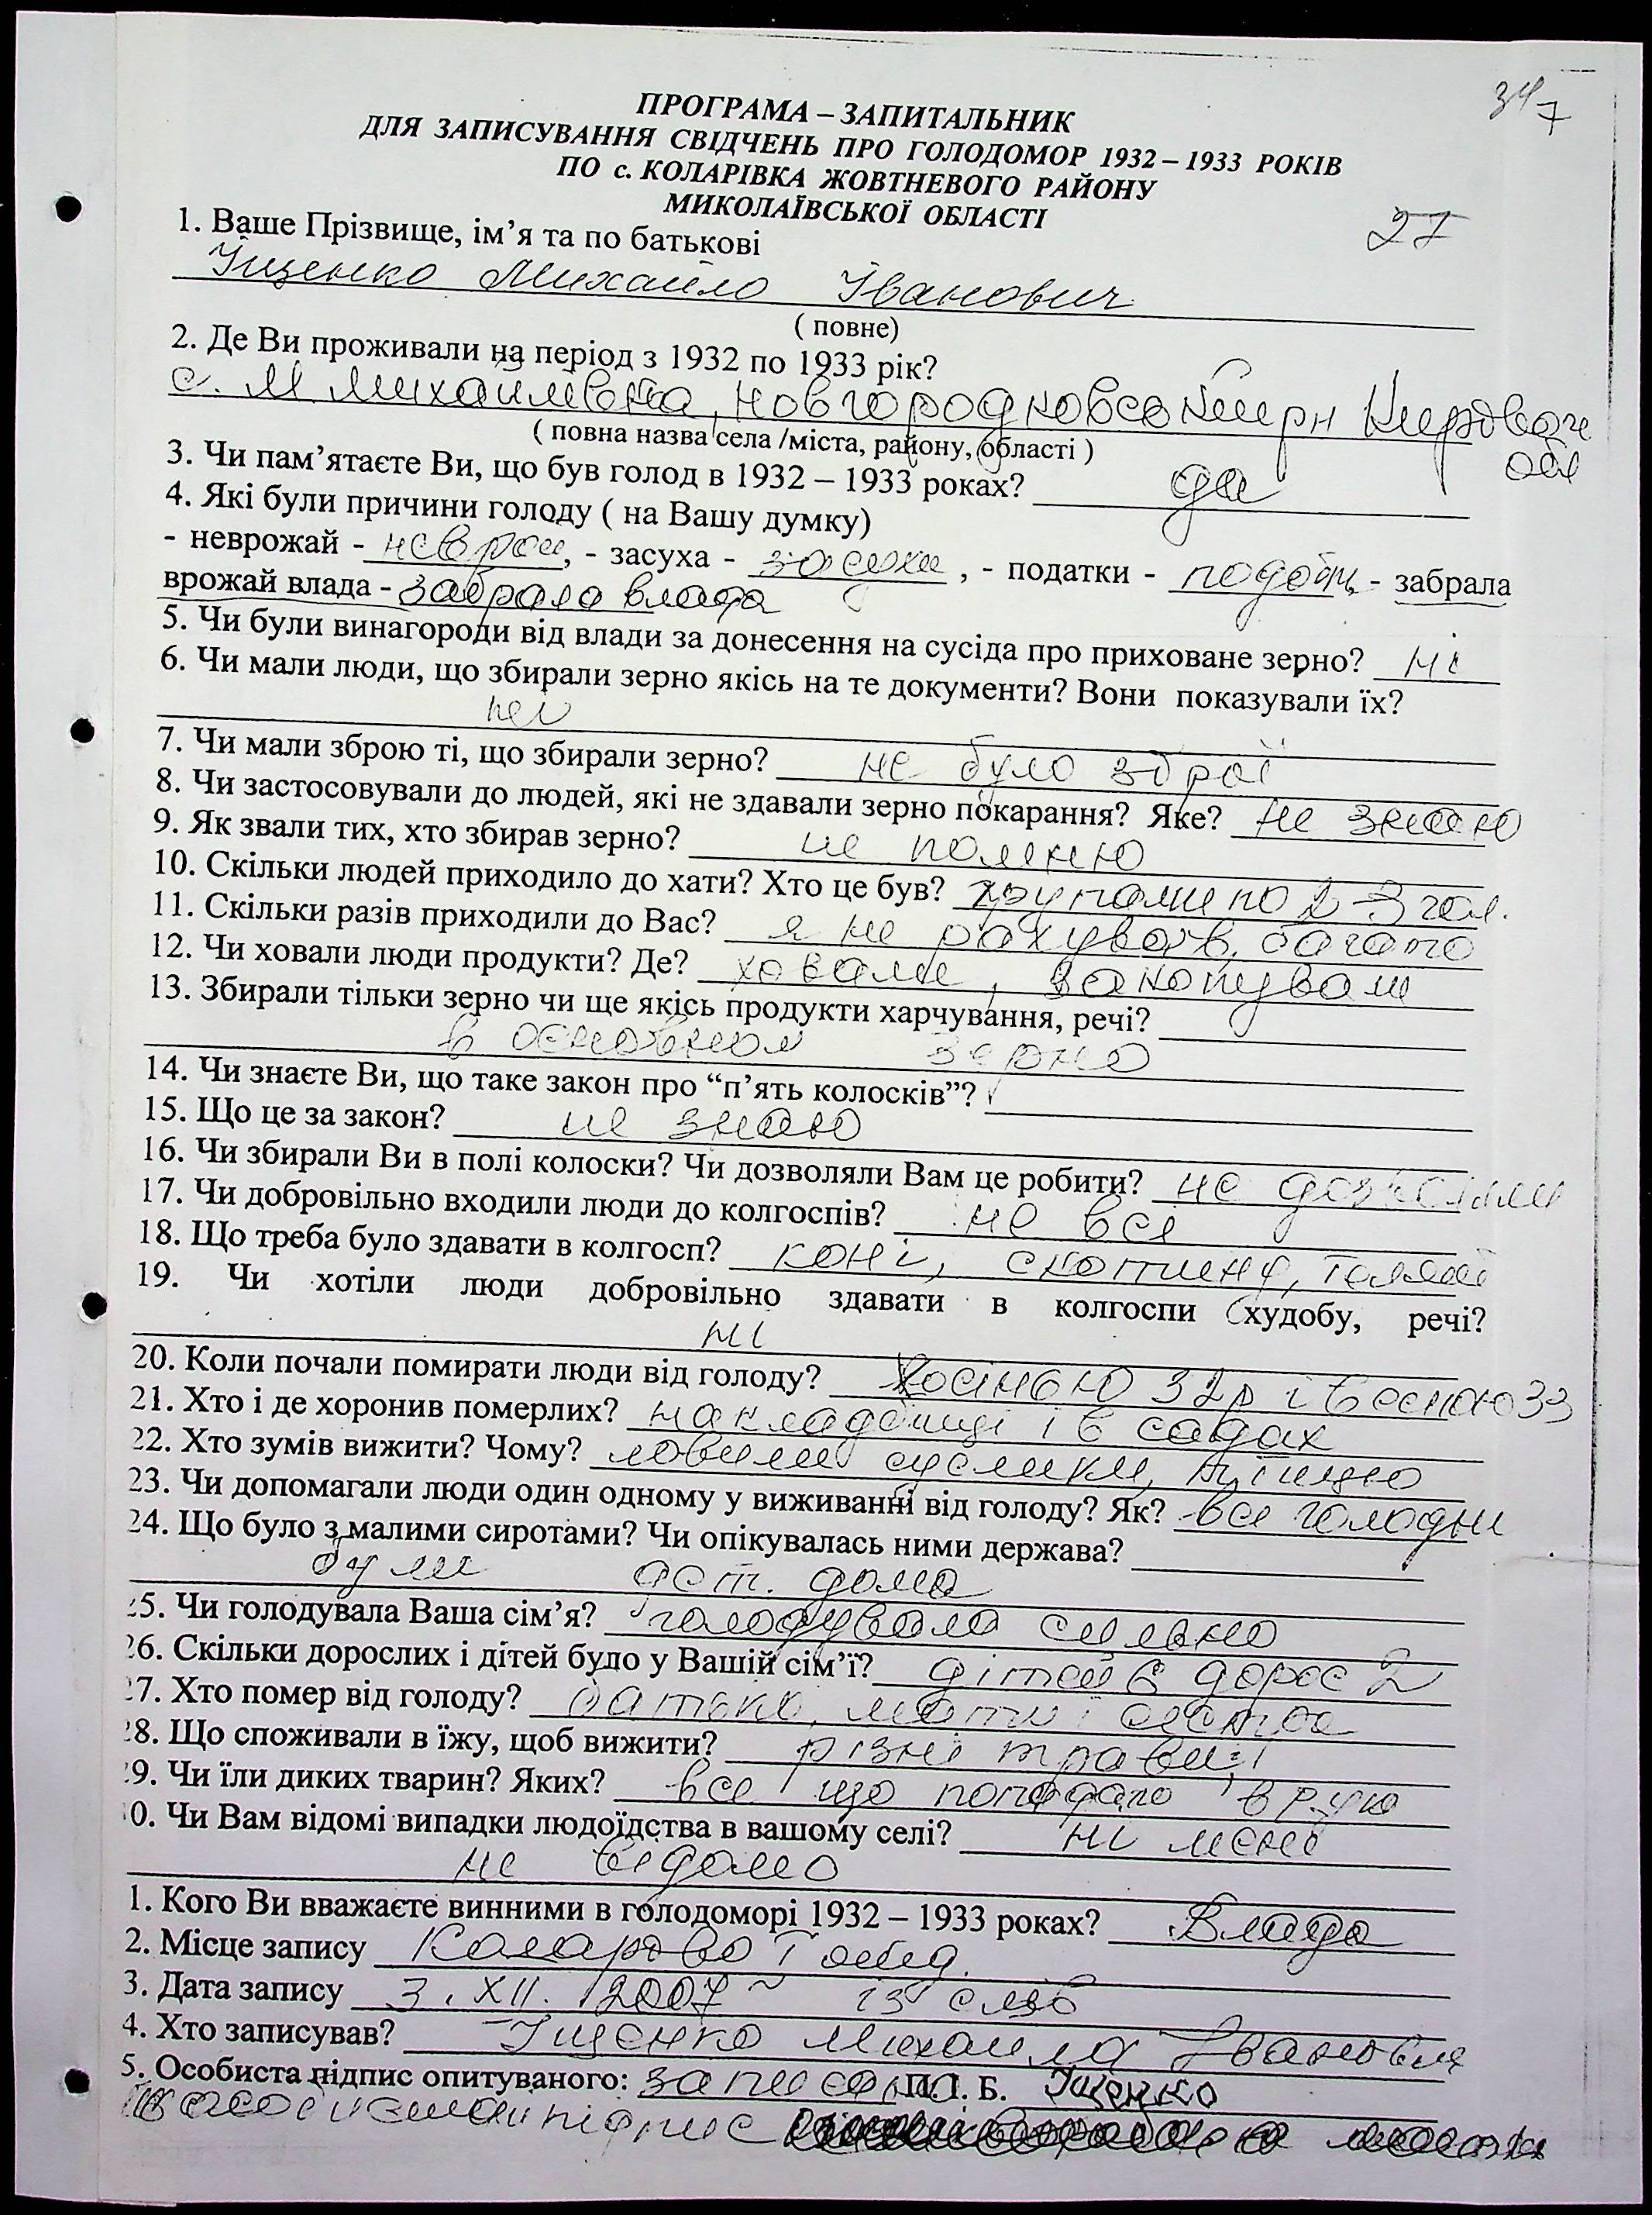 34 7
ПРОГРАМА – ЗАПИТАЛЬНИК
ДЛЯ ЗАПИСУВАННЯ СВІДЧЕНЬ ПРО ГОЛОДОМОР 1932 – 1933 РОКІВ
ПО с. КОЛАРІВКА ЖОВТНЕВОГО РАЙОНУ
МИКОЛАЇВСЬКОЇ ОБЛАСТІ
27
1. Ваше Прізвище, ім’я та по батькові
Іщенко Михайло Іванович
( повне)
2. Де Ви проживали на період з 1932 по 1933 рік?
с. М. Михайлівка, Новгородковський рн
обл
( повна назва села /міста, району, області )
3. Чи пам’ятаєте Ви, що був голод в 1932 – 1933 роках? да
4. Які були причини голоду ( на Вашу думку)
- неврожай - , - засуха - засуха , - податки - - забрала
врожай влада - забрала влада
5. Чи були винагороди від влади за донесення на сусіда про приховане зерно? ні
6. Чи мали люди, що збирали зерно якісь на те документи? Вони показували їх?
7. Чи мали зброю ті, що збирали зерно? не було зброї
8. Чи застосовували до людей, які не здавали зерно покарання? Яке? не знаю
9. Як звали тих, хто збирав зерно? не помню
10. Скільки людей приходило до хати? Хто це був? групами по 2-3 чол.
11. Скільки разів приходили до Вас? я не рахував, багато
12. Чи ховали люди продукти? Де? ховали, закопували
13. Збирали тільки зерно чи ще якісь продукти харчування, речі?
в основном зерно
14. Чи знаєте Ви, що таке закон про “п’ять колосків”?
15. Що це за закон? не знаю
16. Чи збирали Ви в полі колоски? Чи дозволяли Вам це робити? не дозволяли
17. Чи добровільно входили люди до колгоспів? не всі
18. Що треба було здавати в колгосп? коні, скотину,
19. Чи хотіли люди добровільно здавати в колгоспи худобу, речі?
ні
20. Коли почали помирати люди від голоду? осінью 32р і весною 33
21. Хто і де хоронив померлих? на кладбищі і в садах
22. Хто зумів вижити? Чому? ловили сусликів, птицю
23. Чи допомагали люди один одному у виживанні від голоду? Як? всі голодні
24. Що було з малими сиротами? Чи опікувалась ними держава?
були дет. дома
25. Чи голодувала Ваша сім’я? голодувала сильно
26. Скільки дорослих і дітей було у Вашій сім’ї? дітей 6 дорос 2
27. Хто помер від голоду? батько, мати і сестра
28. Що споживали в їжу, щоб вижити? різні трави
29. Чи їли диких тварин? Яких? все що попадало в руки
0. Чи Вам відомі випадки людоїдства в вашому селі? ні мені
не відомо
1. Кого Ви вважаєте винними в голодоморі 1932 – 1933 роках? Влада
2. Місце запису
3. Дата запису 3. XII. 2007 із слів
4. Хто записував? Іщенко Михайла Івановича
5. Особиста підпис опитуваного: П. І. Б. Іщенко
підпис